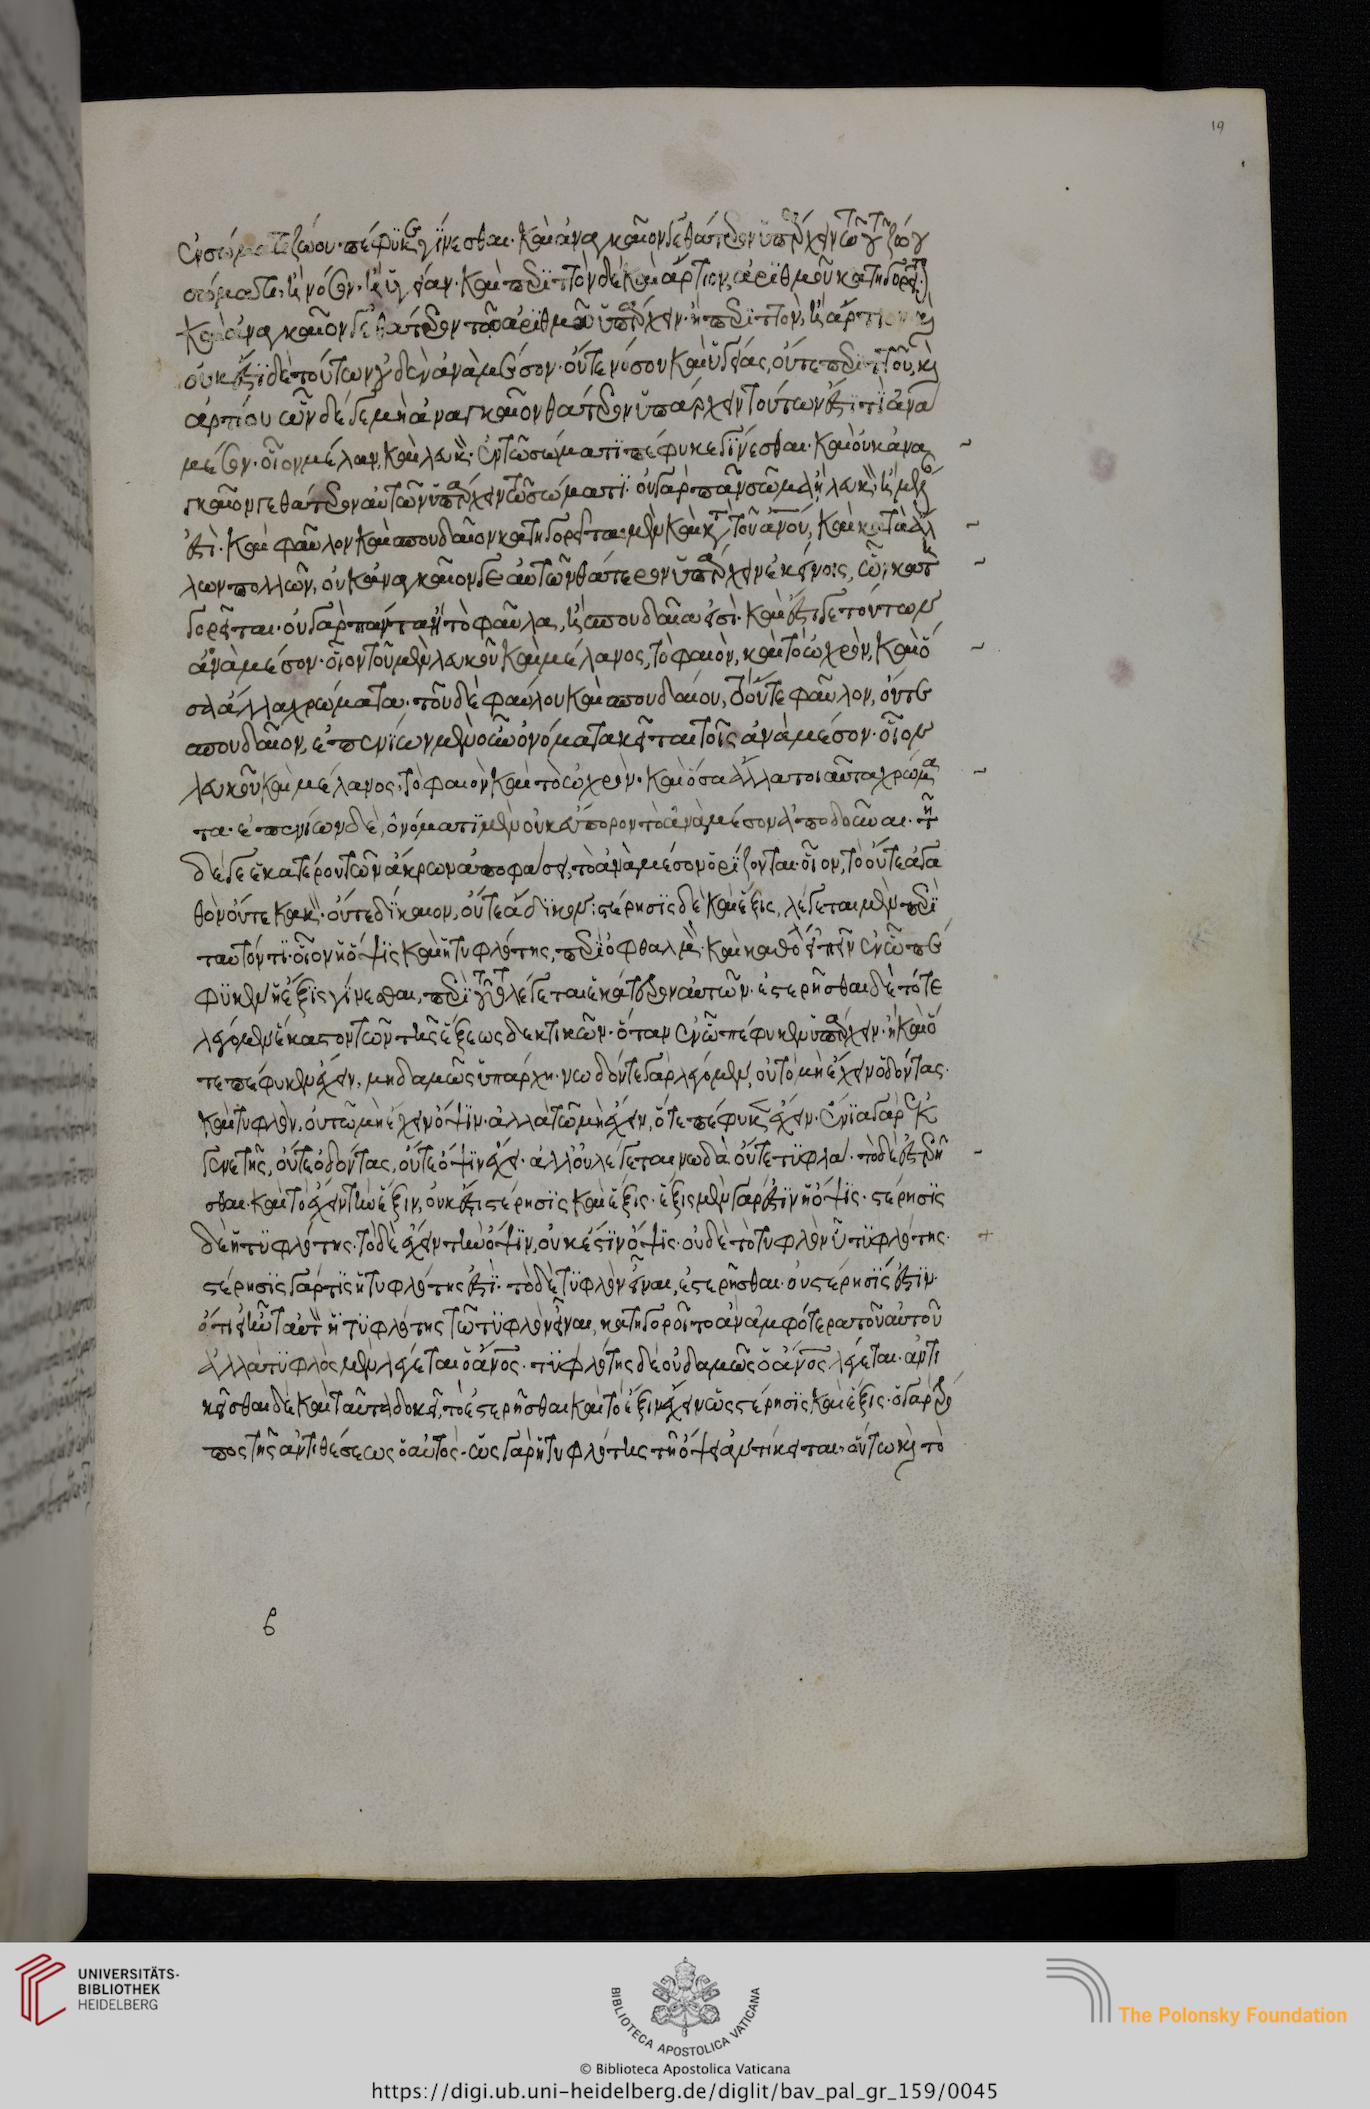 19
ἐν σώματι ζώου πέφυκε γίνεσθαι· καὶ ἀναγκαῖόν γε θάτερον ὑπάρχειν τῶ τοῦ ζώου
σώματι, ἢ νόσον, ἢ ὑγείαν· καὶ περιττὸν δὲ καὶ ἄρτιον, ἀριθμοῦ κατηγορεῖται·
καὶ ἀναγκαῖόν γε θάτερον τοῦ ἀριθμοῦ ὑπάρχειν· ἢ περιττὸν, ἢ ἄρτιον· καὶ
οὐκ ἔστι δὲ τούτων οὐδὲν ἀνὰ μέσον· οὔτε νόσου καὶ ὑγείας, οὔτε περιττοῦ, καὶ
ἀρτίου· ὧν δέ γε μὴ ἀναγκαῖον θάτερον ὑπάρχειν τούτων ἔστι τὶ ἀνὰ
μέσον· οἷον μέλαν, καὶ λευκὸν· ἐν τῶ σώματι πέφυκε γίνεσθαι· καὶ οὐκ ἀνα
γκαῖόν γε θάτερον αὐτῶν ὑπάρχειν τῶ σώματι· οὐ γὰρ πᾶν σῶμα ἢ λευκὸν, ἢ μέλαν
ἐστὶ· καὶ φαῦλον καὶ σπουδαῖον κατηγορεῖται μὲν καὶ κατὰ τοῦ ἀνου, καὶ κατὰ ἄλ
λων πολλῶν, οὐκ ἀναγκαῖον δὲ αὐτῶν θάτερον ὑπάρχειν ἐκείνοις, ὧν κατη
γορεῖται· οὐ γὰρ πάντα ἤτοι φαῦλα, ἢ σπουδαῖα ἐστὶ· καὶ ἔστι γε τούτων
ἀνὰ μέσον· οἷον τοῦ μὲν λευκοῦ καὶ μέλανος, τὸ φαιὸν, καὶ τὸ ὠχρὸν, καὶ ὅ
σα ἄλλα χρώματα· τοῦ δὲ φαύλου καὶ σπουδαίου, τὸ οὔτε φαῦλον, οὔτε
σπουδαῖον, ἐπ ενίων μὲν οὖν ὀνόματα κεῖται τοῖς ἀνὰ μέσον· οἷον
λευκοῦ καὶ μέλανος, τὸ φαιὸν καὶ τὸ ὠχρὸν· καὶ ὅσα ἄλλα τοιαῦτα χρώμα
τα· ἐπ ενίων δὲ, ὀνόματι μὲν οὐκ εὔπορον τὸ ἀνὰ μέσον ἀποδοῦναι· τῆ
δέ γε ἑκατέρου τῶν ἄκρων ἀποφάσει, τὸ ἀνὰ μέσον ὁρίζονται· οἷον, τὸ οὔτε ἀγα
θὸν οὔτε κακὸν· οὔτε δίκαιον, οὔτε ἄδικον: στέρησις δὲ καὶ ἕξις, λέγεται μὲν περὶ
ταυτόν τι· οἷον ἡ ὄψις καὶ ἡ τυφλότης, περὶ ὀφθαλμὸν· καὶ καθόλου εἰπεῖν ἐν ὧ πέ
φυκεν ἡ ἕξις γίνεσθαι, περὶ τοῦτο λέγεται ἑκάτερον αὐτῶν· ἐστερῆσθαι δὲ τότε
λέγομεν ἕκαστον τῶν τῆς ἕξεως δεκτικῶν· ὅταν ἐν ὧ πέφυκεν ὑπάρχειν· ἢ καὶ ὅ
τε πέφυκεν ἔχειν, μηδαμῶς ὑπάρχη· νωδόν τε γὰρ λέγομεν, οὐ τὸ μὴ ἔχειν ὀδόντας·
καὶ τυφλὸν, οὐ τῶ μὴ ἔχειν ὄψιν· ἀλλὰ τῶ μὴ ἔχειν, ὅτε πέφυκεν ἔχειν· ἔνια γὰρ ἐκ
γενετῆς, οὔτε ὀδόντας, οὔτε ὄψιν ἔχει· ἀλλ οὐ λέγεται νωδὰ οὔτε τυφλά· τὸ δὲ ἐστερῆ
σθαι· καὶ τὸ ἔχειν τὴν ἕξιν, οὐκ ἔστι στέρησις καὶ ἕξις· ἕξις μὲν γάρ ἐστιν ἡ ὄψις· στέρησις
δὲ ἡ τυφλότης· τὸ δὲ ἔχειν τὴν ὄψιν, οὐκ ἔστιν ὄψις· οὐδὲ τὸ τυφλὸν ἡ τυφλότης·
στέρησις γάρ τις ἡ τυφλότης ἐστὶ· τὸ δὲ τυφλὸν εἶναι, ἐστερῆσθαι· οὐ στέρησίς ἐστιν·
ὅτι εἰ ἦν ταὐτὸν ἡ τυφλότης τῶ τυφλὸν εἶναι, κατηγοροῖτο ἂν ἀμφότερα τοῦ αὐτοῦ
ἀλλὰ τυφλὸς μὲν λέγεται ὁ ἄνος· τυφλότης δὲ οὐδαμῶς ὁ ἄνος λέγεται· ἀντι
κεῖσθαι δὲ καὶ ταῦτα δοκεῖ, τὸ ἐστερῆσθαι καὶ τὸ ἕξιν ἔχειν ὡς στέρησις καὶ ἕξις· ὁ γὰρ τρό
πος τῆς ἀντιθέσεως ὁ αὐτός· ὡς γὰρ ἡ τυφλότης τῆ ὄψει ἀντίκειται, οὕτω καὶ τὸ
UNIVERSITÄTS-
BIBLIOTHEK
HEIDELBERG
BIBLIOTECA APOSTOLICA VATICANA
The Polonsky Foundation
© Biblioteca Apostolica Vaticana
https://digi.ub.uni-heidelberg.de/diglit/bav_pal_gr_159/0045